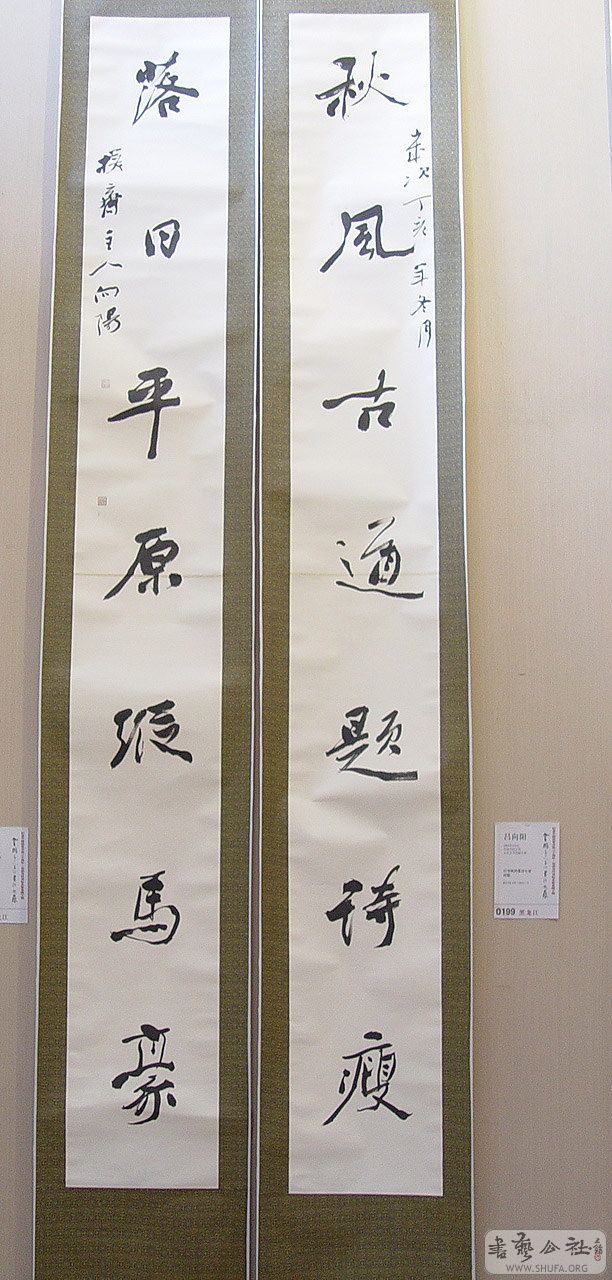 秋风古道题诗瘦
岁次丁亥年冬月
落日平原縱馬豪
主人向陽
吕向阳
0199 黑龙江
書藝公社
WWW.SHUFA.ORG